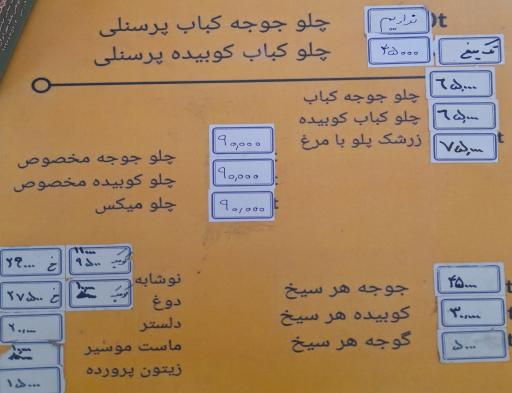 چلو جوجه کباب پرسنلی نداریم
چلو کباب کوبیده پرسنلی ۴۵۰۰۰ تک سیخ
چلو جوجه کباب ۶۵۰۰۰
چلو کباب کوبیده ۶۵۰۰۰
زرشک پلو با مرغ ۷۵۰۰۰
چلو جوجه مخصوص ۹۰,۰۰۰
چلو کوبیده مخصوص ۹۰,۰۰۰
چلو میکس ۹۰,۰۰۰
جوجه هر سیخ ۴۵۰۰۰
کوبیده هر سیخ ۳۰,۰۰۰
گوجه هر سیخ ۵۰۰۰
نوشابه
دوغ
دلستر ۲۰,۰۰۰
ماست موسیر
زیتون پرورده ۱۵۰۰۰